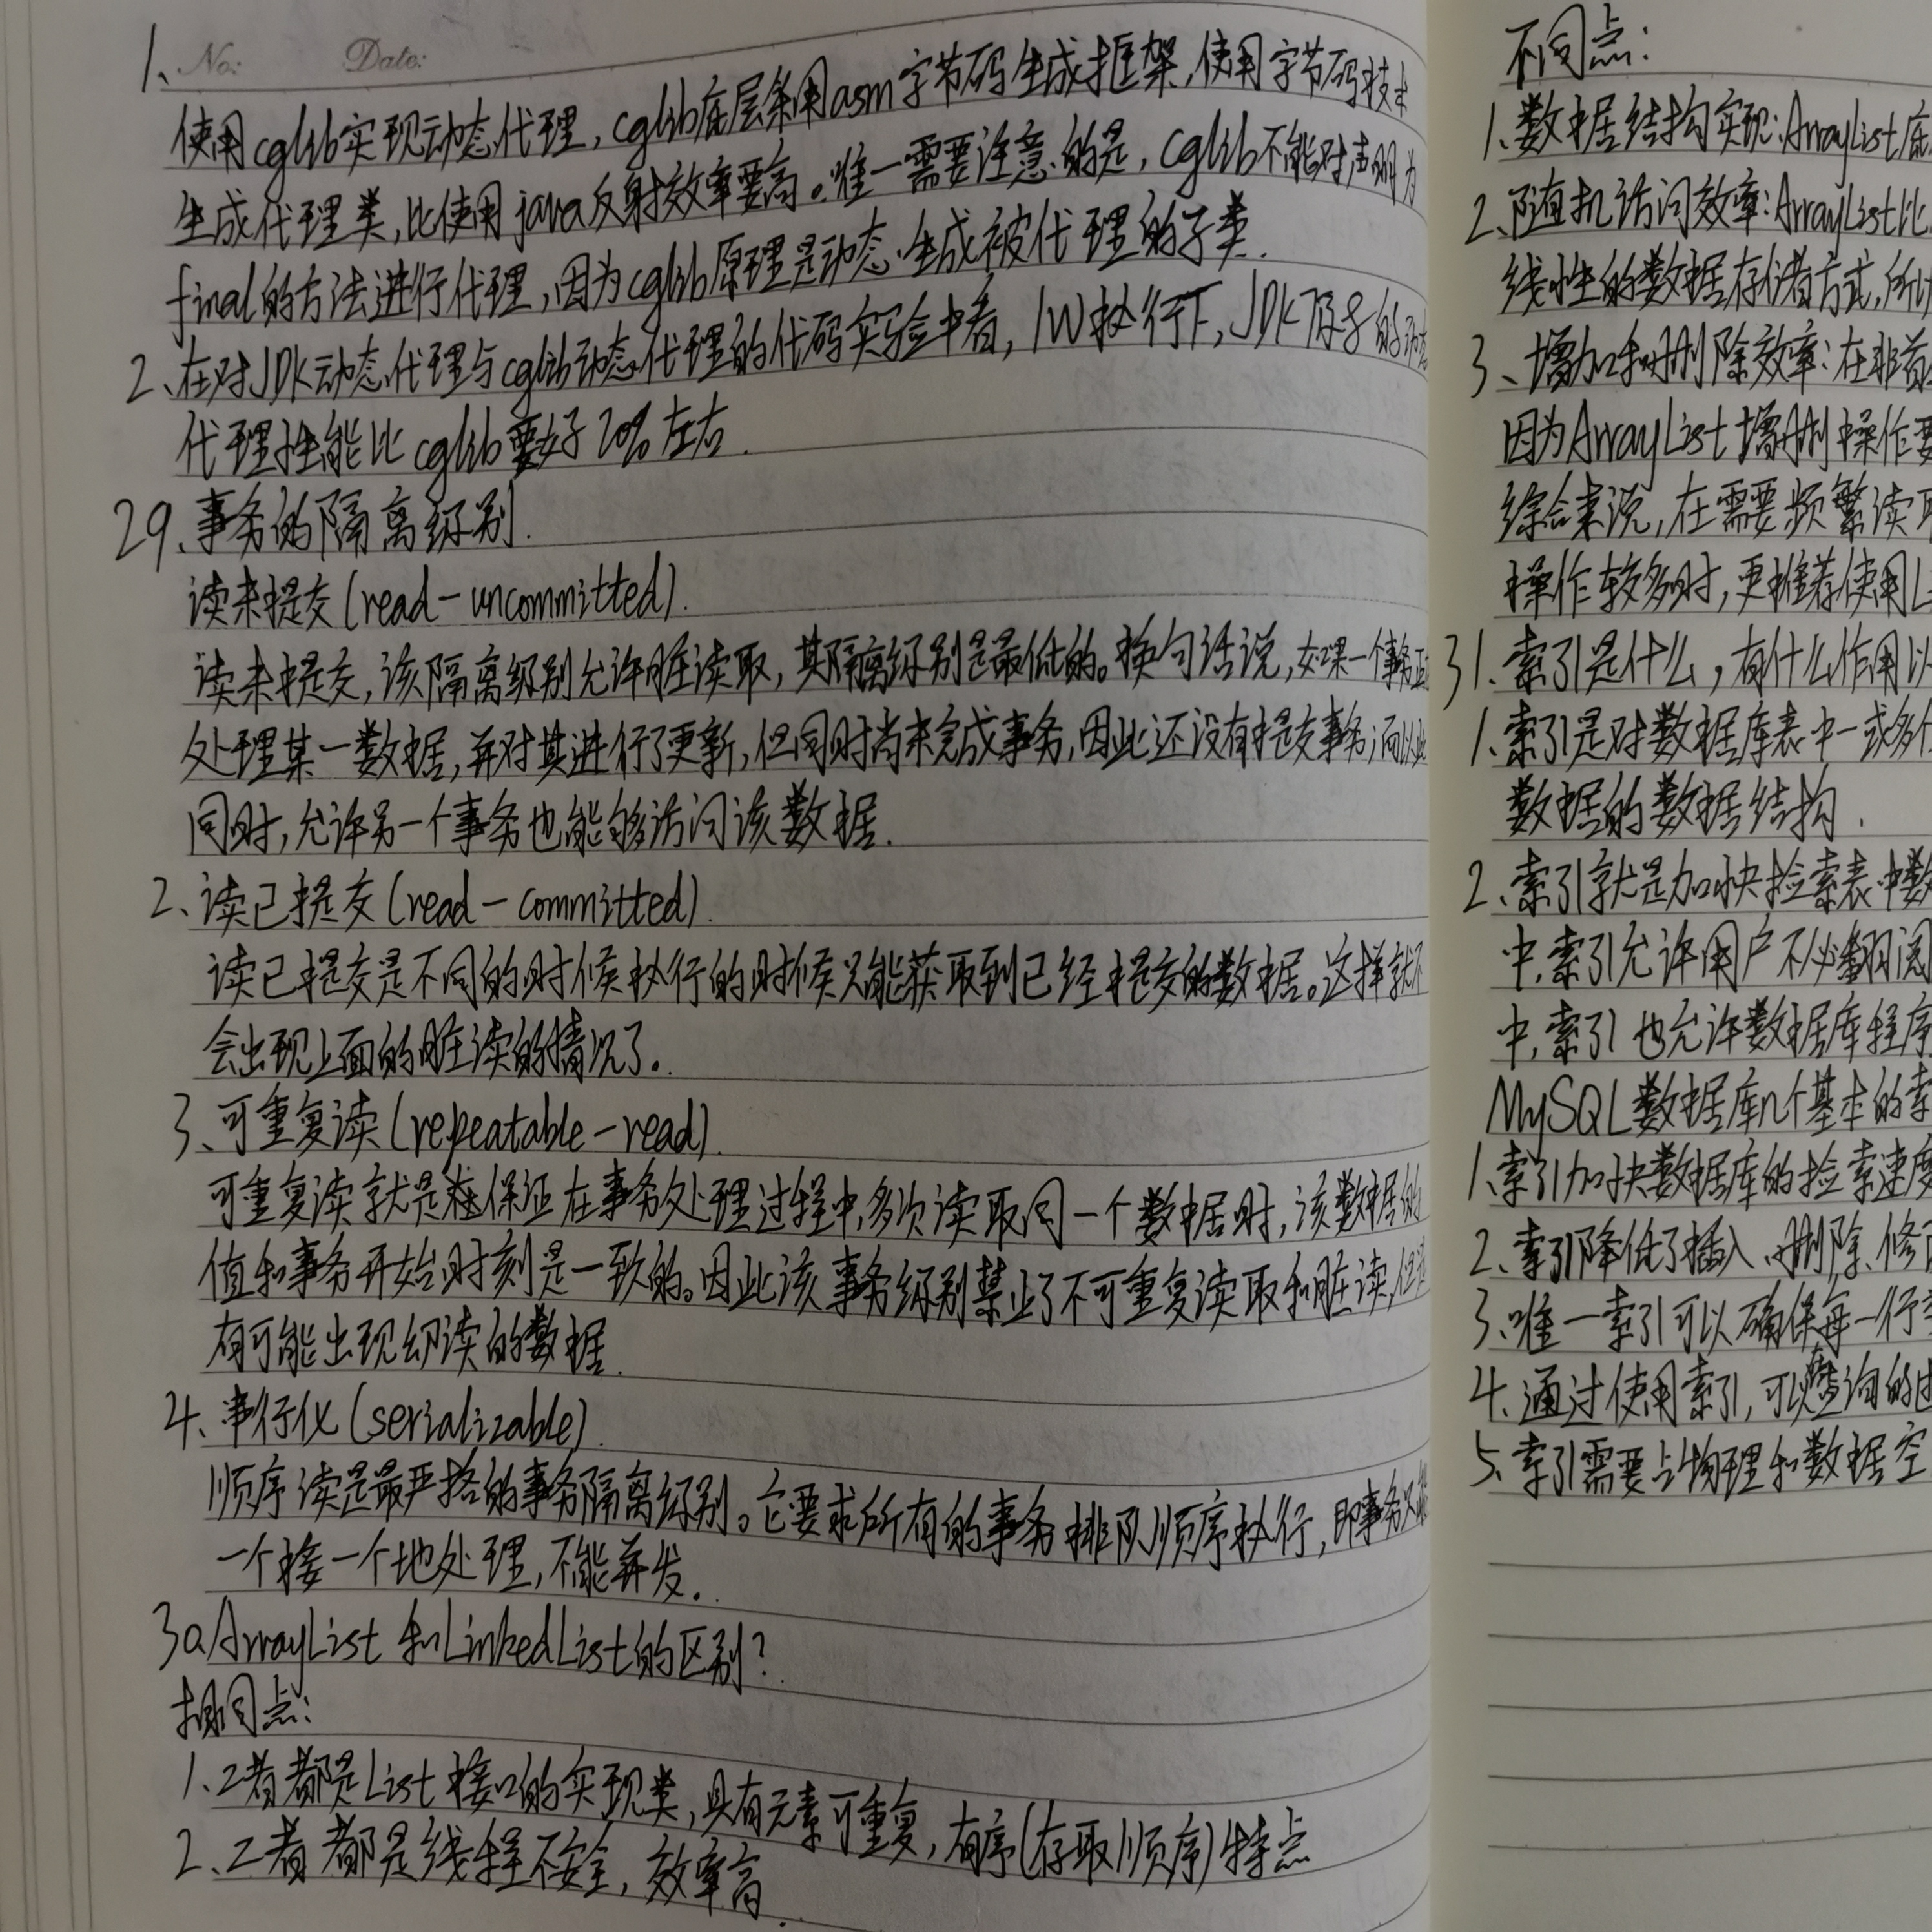 1、No: Date:
使用cglib实现动态代理,cglib底层采用asm字节码生成框架,使用字节码技术
生成代理类,比使用java反射效率要高。唯一需要注意的是,cglib不能对声明为
final的方法进行代理,因为cglib原理是动态生成被代理的子类.
2、在对JDK动态代理与cglib动态代理的代码实验中看,1W执行下,JDK 的动态
代理性能比cglib要好20%左右.
29、事务的隔离级别.
读未提交(read-uncommitted).
读未提交,该隔离级别允许脏读取,其隔离级别是最低的。换句话说,如果一个事务正
处理某一数据,并对其进行了更新,但同时尚未完成事务,因此还没有提交事务;而以此
同时,允许另一个事务也能够访问该数据.
2、读已提交(read-committed).
读已提交是不同的时候执行的时候只能获取到已经提交的数据。这样就不
会出现上面的脏读的情况了。
3、可重复读(repeatable-read)
可重复读就是 保证在事务处理过程中,多次读取同一个数据时,该数据的
值和事务开始时刻是一致的。因此该事务级别禁止了不可重复读取和脏读,但
有可能出现幻读的数据.
4、串行化(serializable).
顺序读是最严格的事务隔离级别。它要求所有的事务排队顺序执行,即事务只能
一个接一个地处理,不能并发.
30.ArrayList和LinkedList的区别?
相同点:
1、2者都是List接口的实现类,具有元素可重复,有序(存取顺序)特点
2、2者都是线程不安全,效率高.
不同点:
1、数据结构实现:ArrayList底
2、随机访问效率:ArrayList比
线性的数据存储方式,所以
3、增加和删除效率:在非首
因为ArrayList增删操作要
综合来说,在需要频繁读取
操作较多时,更推荐使用L
31.索引是什么,有什么作用以
1、索引是对数据库表中一或多个
数据的数据结构.
2.索引就是加快检索表中数
中,索引允许用户不必翻阅
中,索引也允许数据库程序
MySQL数据库几个基本的索
1.索引加快数据库的检索速度
2.索引降低了插入、删除、修改
3.唯一索引可以确保每一行
4.通过使用索引,可以在查询的过
5.索引需要占物理和数据空